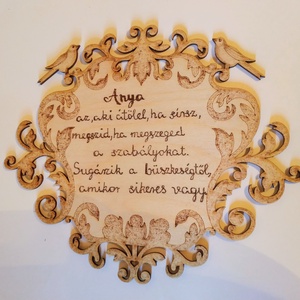 Anya
az, aki átölel, ha sírsz,
megszid, ha megszeged
a szabályokat.
Sugárzik a büszkeségtől,
amikor sikeres vagy